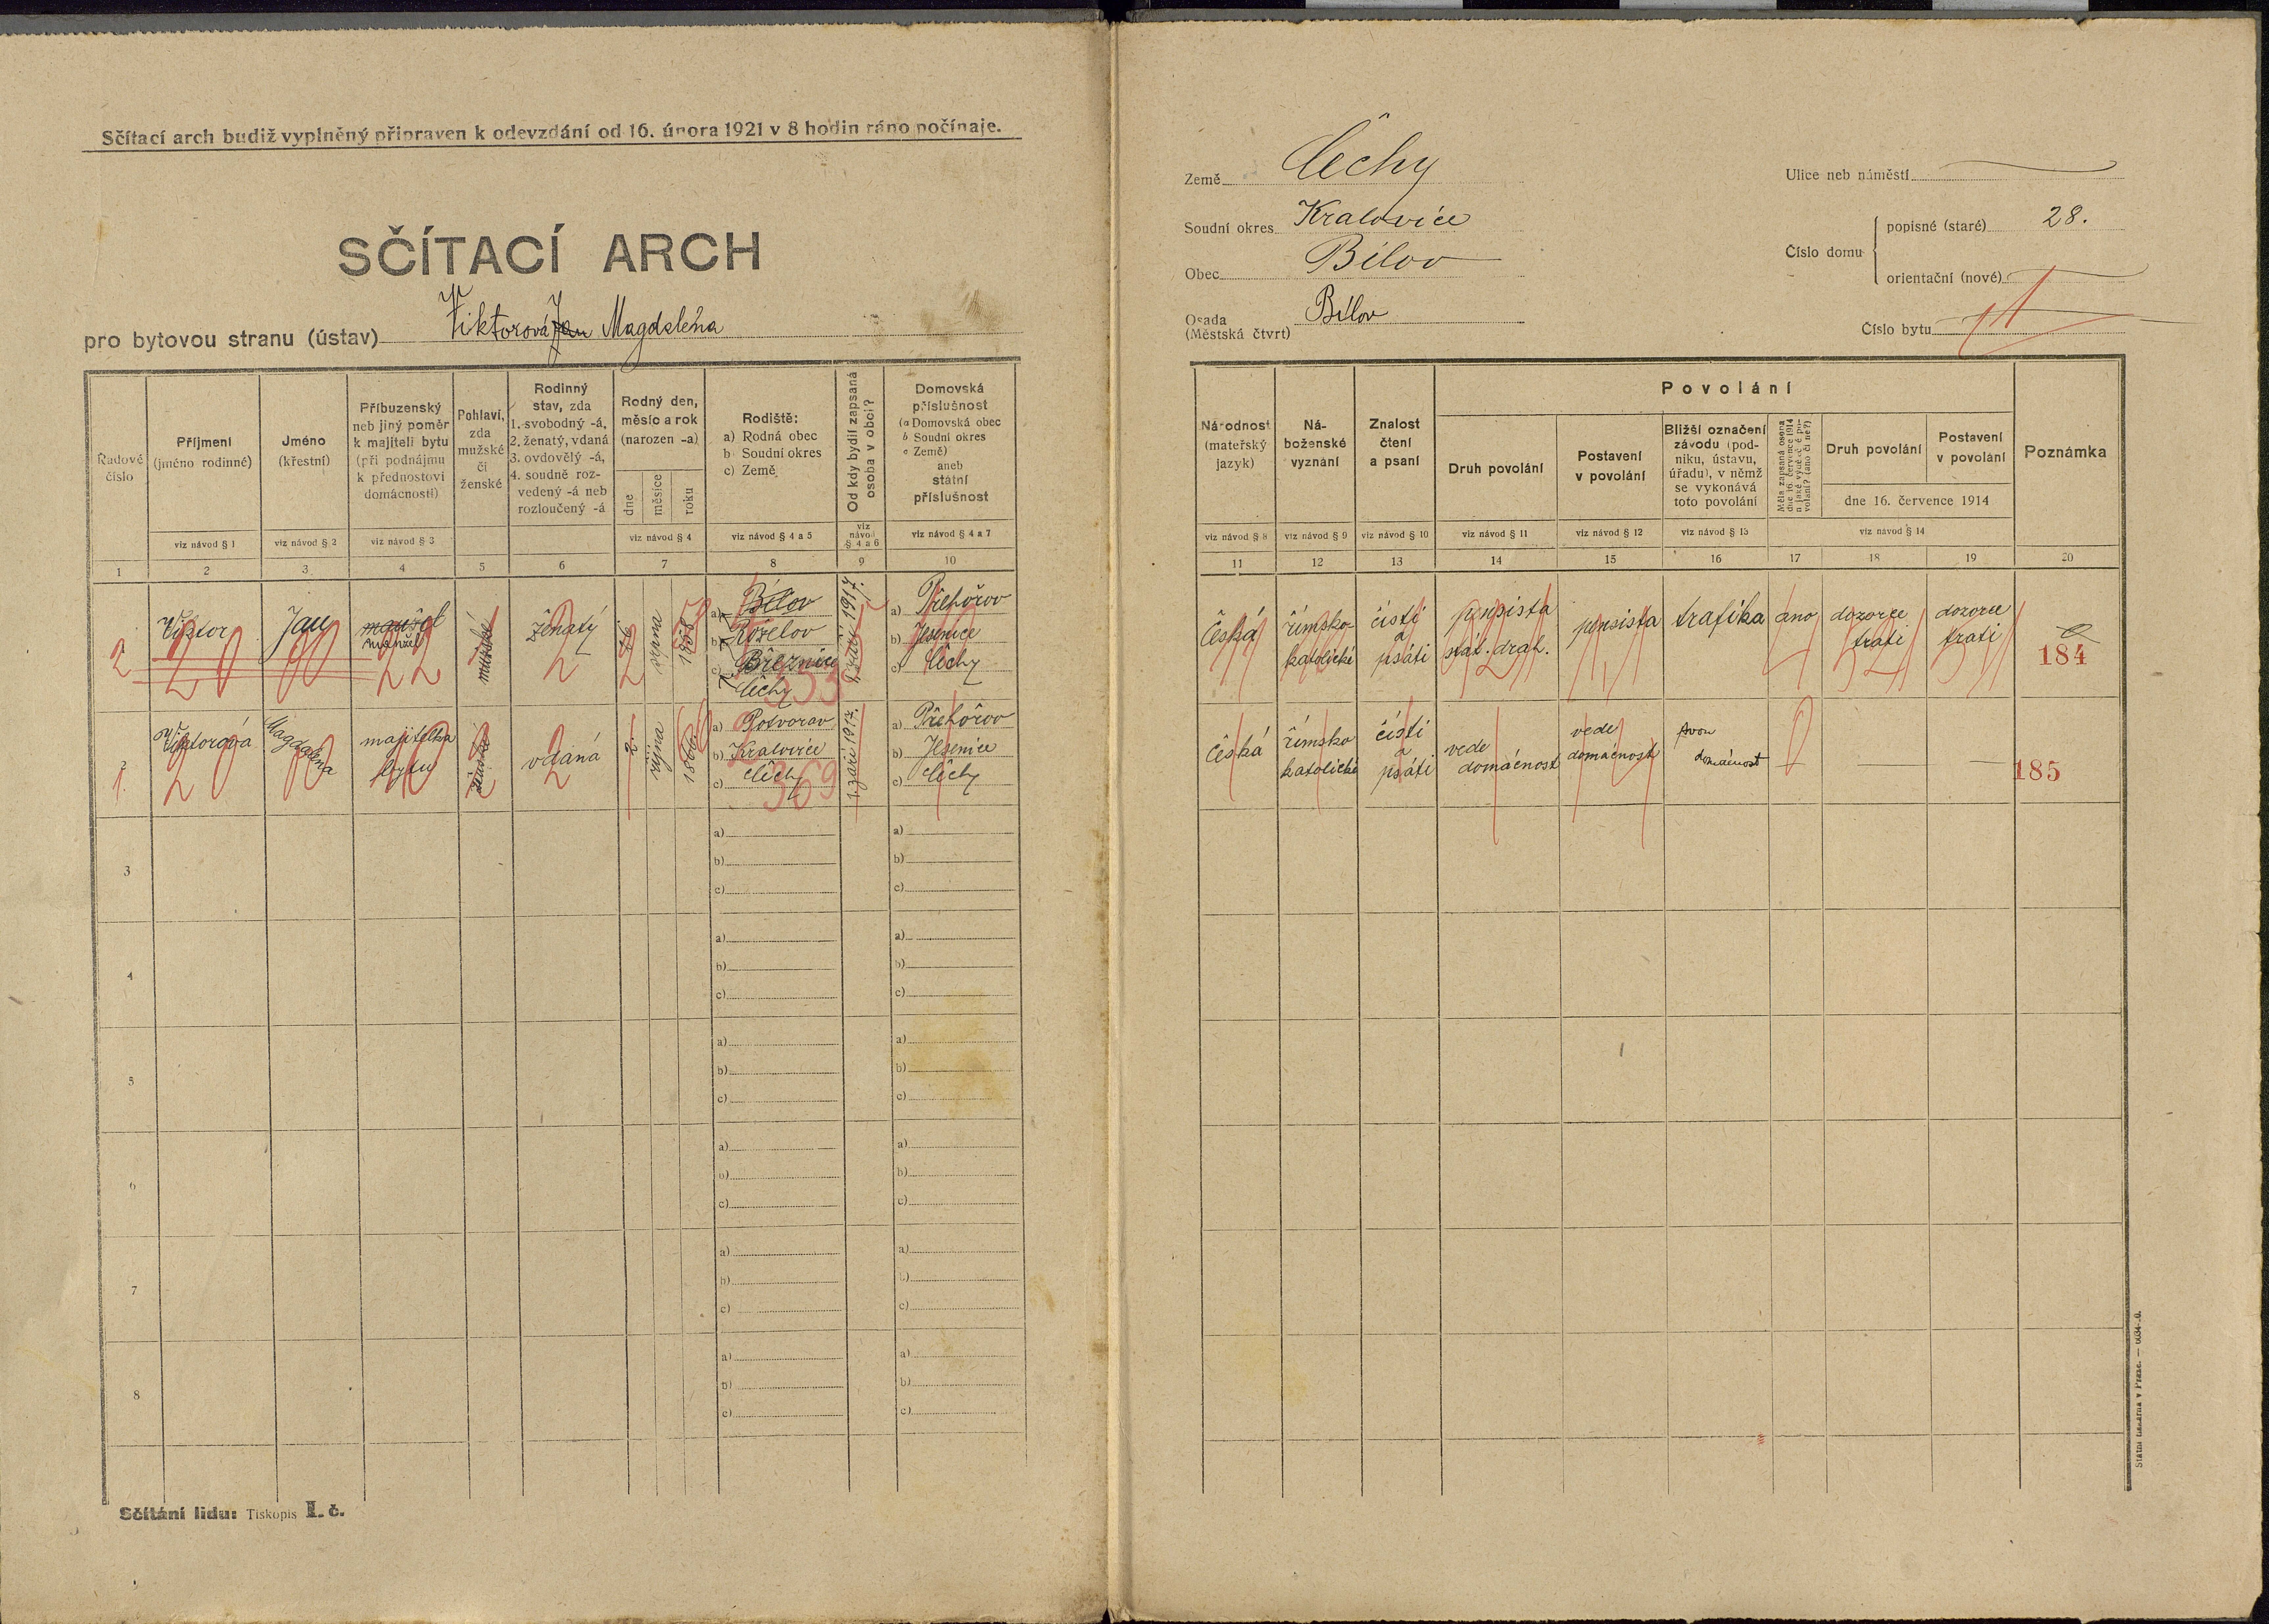 Sčítací arch budiž vyplněný připraven k odevzdání od 16. února 1921 v 8 hodin ráno počínaje.
SČÍTACÍ ARCH
pro bytovou stranu (ústav) Viktorová Jan Magdalena
Řadové číslo
Příjmení
(jméno rodinné)
viz návod § 1
Jméno
(křestní)
viz návod § 2
Příbuzenský
neb jiný poměr
k majiteli bytu
(při podnájmu
k přednostovi
domácnosti)
viz návod § 3
Pohlaví,
zda
mužské
či
ženské
Rodinný
stav, zda
1. svobodný -á,
2. ženatý, vdaná
3. ovdovělý -á,
4. soudně roz-
vedený -á neb
rozloučený -á
Rodný den,
měsíc a rok
(narozen -a)
dne
měsíce
roku
viz návod § 4
Rodiště:
a) Rodná obec
b) Soudní okres
c) Země
viz návod § 4 a 5
Od kdy bydlí zapsaná
osoba v obci?
viz
návod
§ 4 a 6
Domovská
příslušnost
(a Domovská obec
b Soudní okres
c Země)
aneb
státní
příslušnost
viz návod § 4 a 7
1 2 3 4 5 6 7 8 9 10
2
Viktor
Jan
manžel
manžel
mužské
ženatý
16
října
1858
a) Bílov
b) Roželov
c) Březnice
Čechy
553
1. září 1917.
a) Přehořov
b) Jesenice
c) Čechy
2
1.
Viktorová
Magdalena
majitelka
bytu
ženské
vdaná
2.
října
1866
a) Potvorov
b) Kralovice
c) Čechy
369
1. září 1917.
a) Přehořov
b) Jesenice
c) Čechy
3
a)
b)
c)
a)
b)
c)
4
a)
b)
c)
a)
b)
c)
5
a)
b)
c)
a)
b)
c)
6
a)
b)
c)
a)
b)
c)
7
a)
b)
c)
a)
b)
c)
8
a)
b)
c)
a)
b)
c)
Sčítání lidu: Tiskopis I. č.
Země Čechy
Soudní okres Kralovice
Obec Bílov
Osada Bílov
(Městská čtvrt)
Ulice neb náměstí
Číslo domu
popisné (staré) 28.
orientační (nové)
Číslo bytu
Národnost
(mateřský
jazyk)
viz návod § 8
Ná-
boženské
vyznání
viz návod § 9
Znalost
čtení
a psaní
viz návod § 10
Povolání
Druh povolání
viz návod § 11
Postavení
v povolání
viz návod § 12
Bližší označení
závodu (pod-
niku, ústavu,
úřadu), v němž
se vykonává
toto povolání
viz návod § 13
Měla zapsaná osoba
dne 16. července 1914
nějaké výdělečné po-
volání? (ano či ne?)
Druh povolání
Postavení
v povolání
dne 16. července 1914
viz návod § 14
Poznámka
11 12 13 14 15 16 17 18 19 20
Česká
římsko-
katolické
čísti
a
psáti
pensista
stát. drah.
pensista
trafika
ano
dozorce
trati
dozorce
trati
184
Česká
římsko
katolické
čísti
a
psáti
vede
domácnost
vede
domácnost
domácnost
185
Státní tiskárna v Praze.